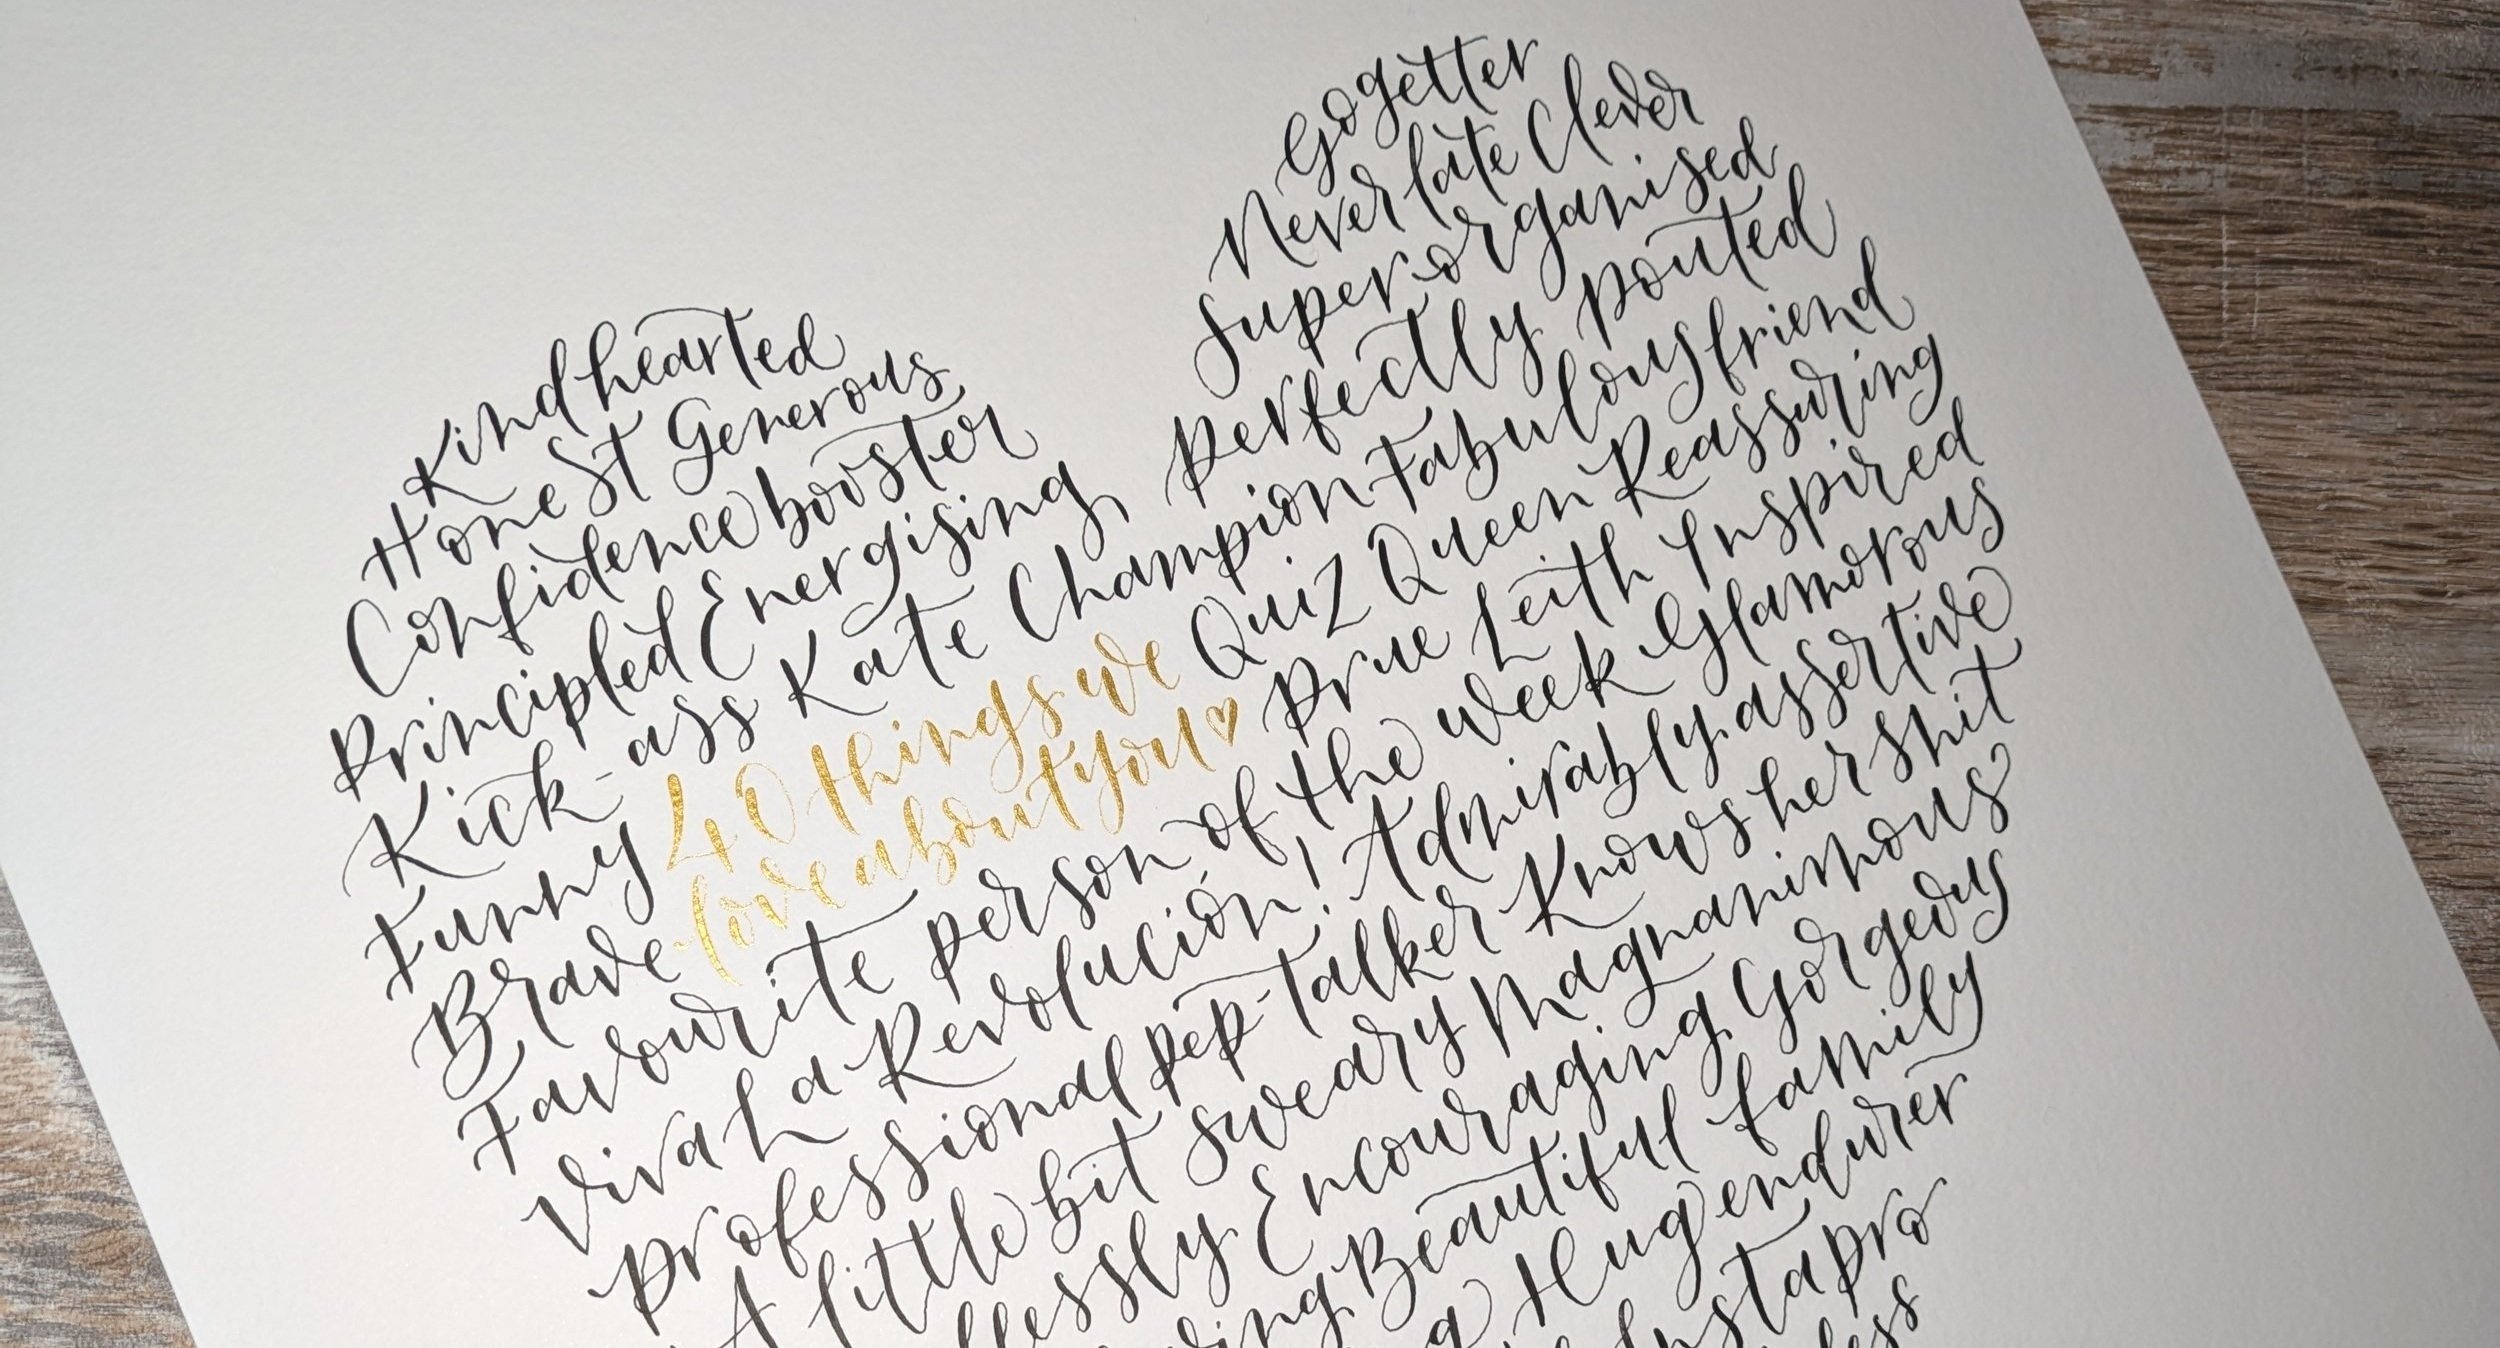 Gogetter
Never late Clever
Super-organised
Perfectly pouted
Kindhearted
Honest Generous
Confidence booster
Principled Energising
Kick-ass Kate Champion Fabulous friend
Funny 40 things we Quiz Queen Reassuring
Brave love about you♡ Prue Leith Inspired
Favourite person of the week Glamorous
Viva La Revolución! Admirably assertive
Professional pep-talker Knows her shit
A little bit sweary Magnanimous
Encouraging Gorgeous
Beautiful family
Hug endurer
Instapro